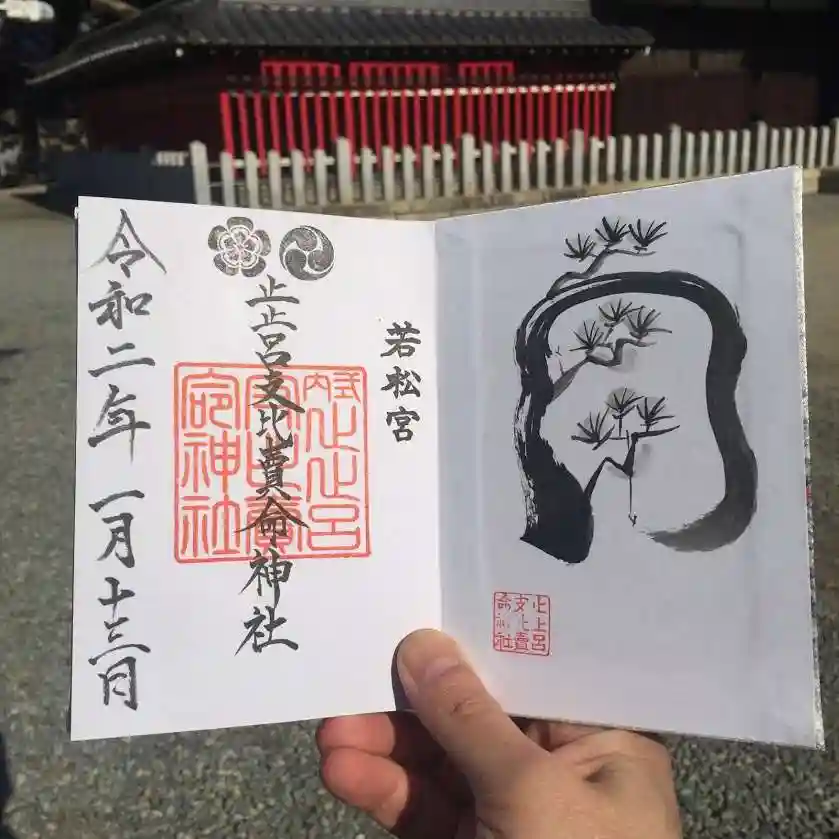 若松宮
止止呂支比賣命神社
令和二年 一月十三日
式内止止呂
支比賣
命神社
止止呂
支比賣
命神社